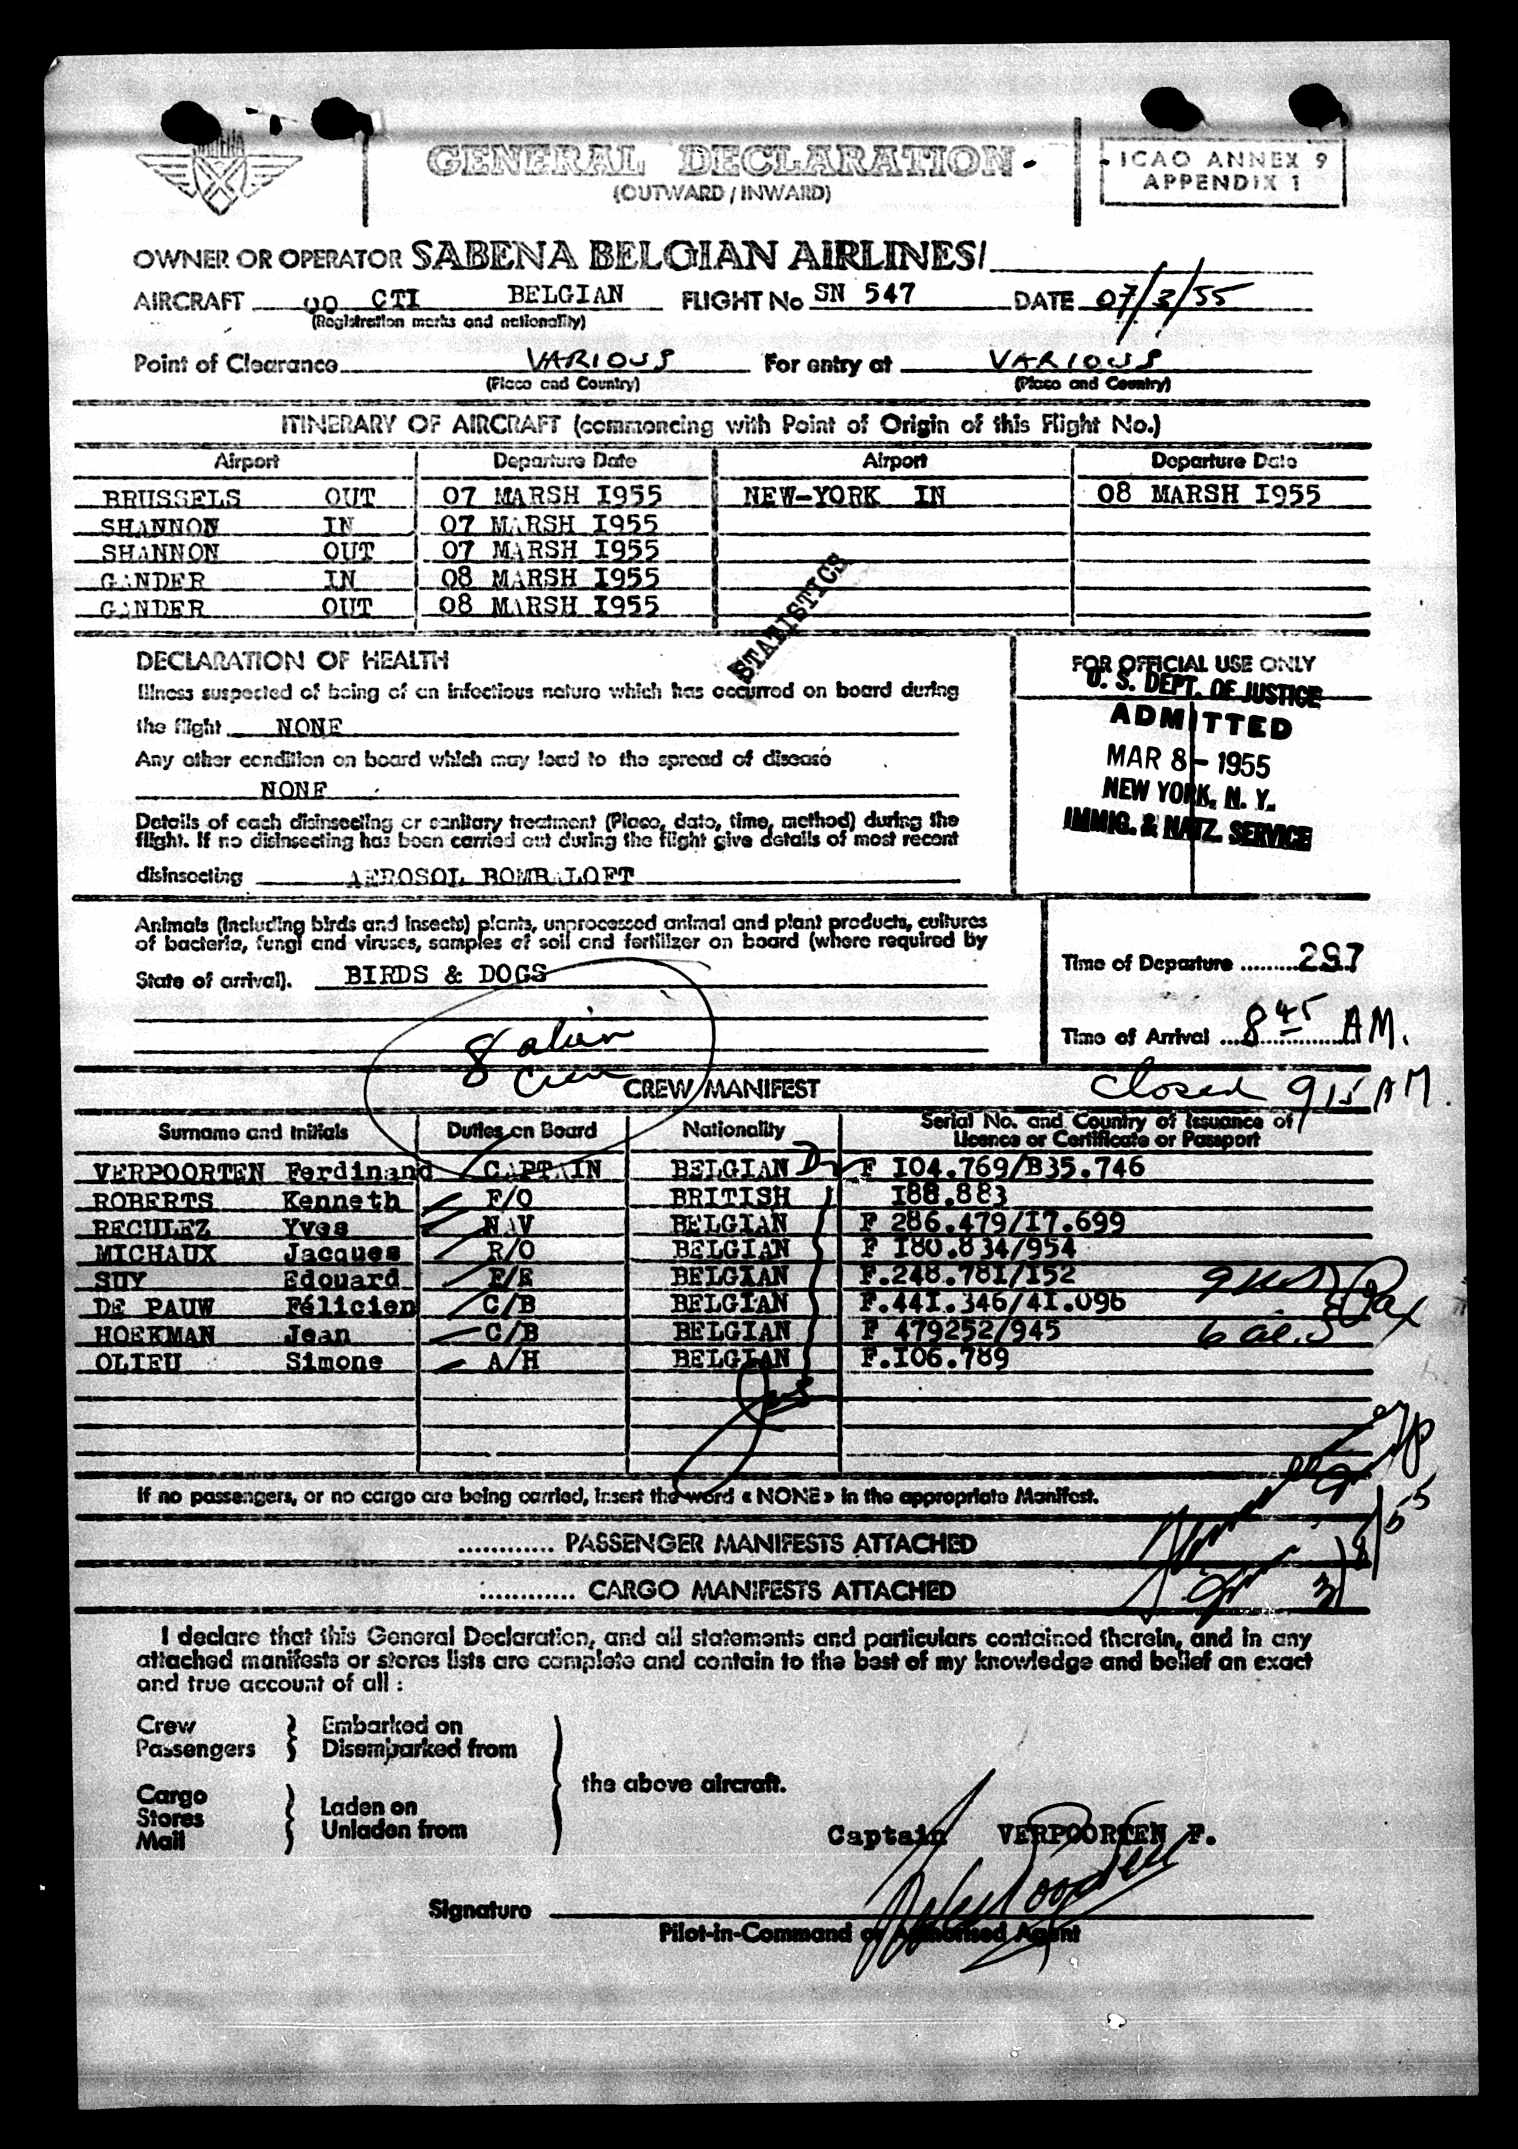 SABENA
GENERAL DECLARATION
(OUTWARD / INWARD)
ICAO ANNEX 9
APPENDIX 1
OWNER OR OPERATOR SABENA BELGIAN AIRLINES/
AIRCRAFT OO CTI BELGIAN FLIGHT No SN 547 DATE 07/3/55
(Registration marks and nationality)
Point of Clearance VARIOUS For entry at VARIOUS
(Place and Country) (Place and Country)
ITINERARY OF AIRCRAFT (commencing with Point of Origin of this Flight No.)
Airport Departure Date Airport Departure Date
BRUSSELS OUT 07 MARSH I955 NEW-YORK IN 08 MARSH I955
SHANNON IN 07 MARSH I955
SHANNON OUT 07 MARSH I955
GANDER IN 08 MARSH I955
GANDER OUT 08 MARSH I955
STATISTICS
DECLARATION OF HEALTH
Illness suspected of being of an infectious nature which has occurred on board during
the flight NONE
Any other condition on board which may lead to the spread of disease
NONE
Details of each disinsecting or sanitary treatment (Place, date, time, method) during the
flight. If no disinsecting has been carried out during the flight give details of most recent
disinsecting AEROSOL BOMB ALOFT
FOR OFFICIAL USE ONLY
U. S. DEPT. OF JUSTICE
ADMITTED
MAR 8 - 1955
NEW YORK, N. Y.
IMMIG. & NATZ. SERVICE
Animals (including birds and insects) plants, unprocessed animal and plant products, cultures
of bacteria, fungi and viruses, samples of soil and fertilizer on board (where required by
State of arrival). BIRDS & DOGS
Time of Departure 297
Time of Arrival 8 45 AM.
8 alien
crew
CREW MANIFEST
closed 915 AM.
Surname and Initials Duties on Board Nationality Serial No. and Country of Issuance of
Licence or Certificate or Passport
VERPOORTEN Ferdinand CAPTAIN BELGIAN D F I04.769/B35.746
ROBERTS Kenneth F/O BRITISH I88.883
RECULEZ Yves NAV BELGIAN F 286.479/I7.699
MICHAUX Jacques R/O BELGIAN F I80.834/954
SUY Edouard F/E BELGIAN F.248.78I/I52
DE PAUW Félicien C/B BELGIAN F.44I.346/4I.096
HOEKMAN Jean C/B BELGIAN F 479252/945
OLIEU Simone A/H BELGIAN F.I06.789
9 USC
6 al.s
Pax
If no passengers, or no cargo are being carried, insert the word « NONE » in the appropriate Manifest.
............ PASSENGER MANIFESTS ATTACHED
............ CARGO MANIFESTS ATTACHED
3/8/55
I declare that this General Declaration, and all statements and particulars contained therein, and in any
attached manifests or stores lists are complete and contain to the best of my knowledge and belief an exact
and true account of all :
Crew
Passengers
Embarked on
Disembarked from
Cargo
Stores
Mail
Laden on
Unladen from
the above aircraft.
Captain VERPOORTEN F.
Signature
Pilot-in-Command or Authorised Agent